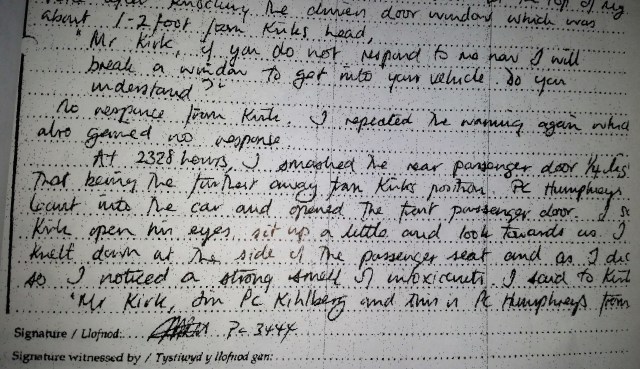 the driver door window which was
about 1-2 foot from Kirks head,
"Mr Kirk, if you do not respond to me now I will
break a window to get into your vehicle. Do you
understand?"
No response from Kirk. I repeated the warning again which
also gained no response
At 2328 hours, I smashed the rear passenger door 1/4 light
That being the furthest away from Kirks position. PC Humphreys
into the car and opened the front passenger door. I
Kirk open his eyes, sit up a little and look towards us. I
knelt down at the side of the passenger seat and as I did
so I noticed a strong smell of intoxicants. I said to Kirk
"Mr Kirk, Im PC Kihlberg and this is PC Humphreys from
Signature / Llofnod: PC 3444
Signature witnessed by / Tystiwyd y llofnod gan: